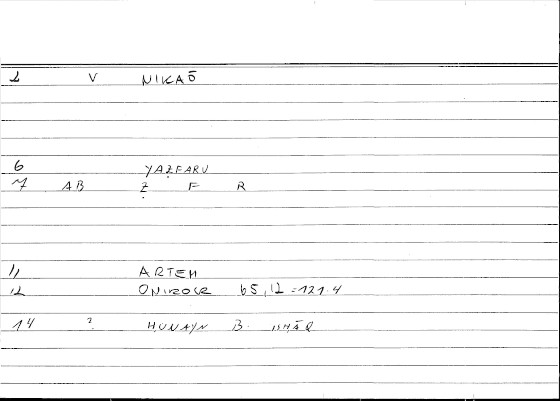 1 V NIKAŌ
6 YAẒFARU
7 AB Ẓ F R
11 ARTEM
12 ONIROCR 65,12 = 121.4
14 ? ḤUNAYN B. ISHĀQ